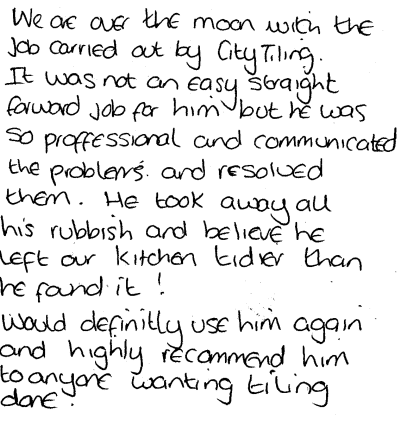 We are over the moon with the
job carried out by City Tiling.
It was not an easy straight
forward job for him but he was
so proffessional and communicated
the problems. and resolved
them. He took away all
his rubbish and believe he
left our kitchen tidier than
he found it !
Would definitly use him again
and highly recommend him
to anyone wanting tiling
done.